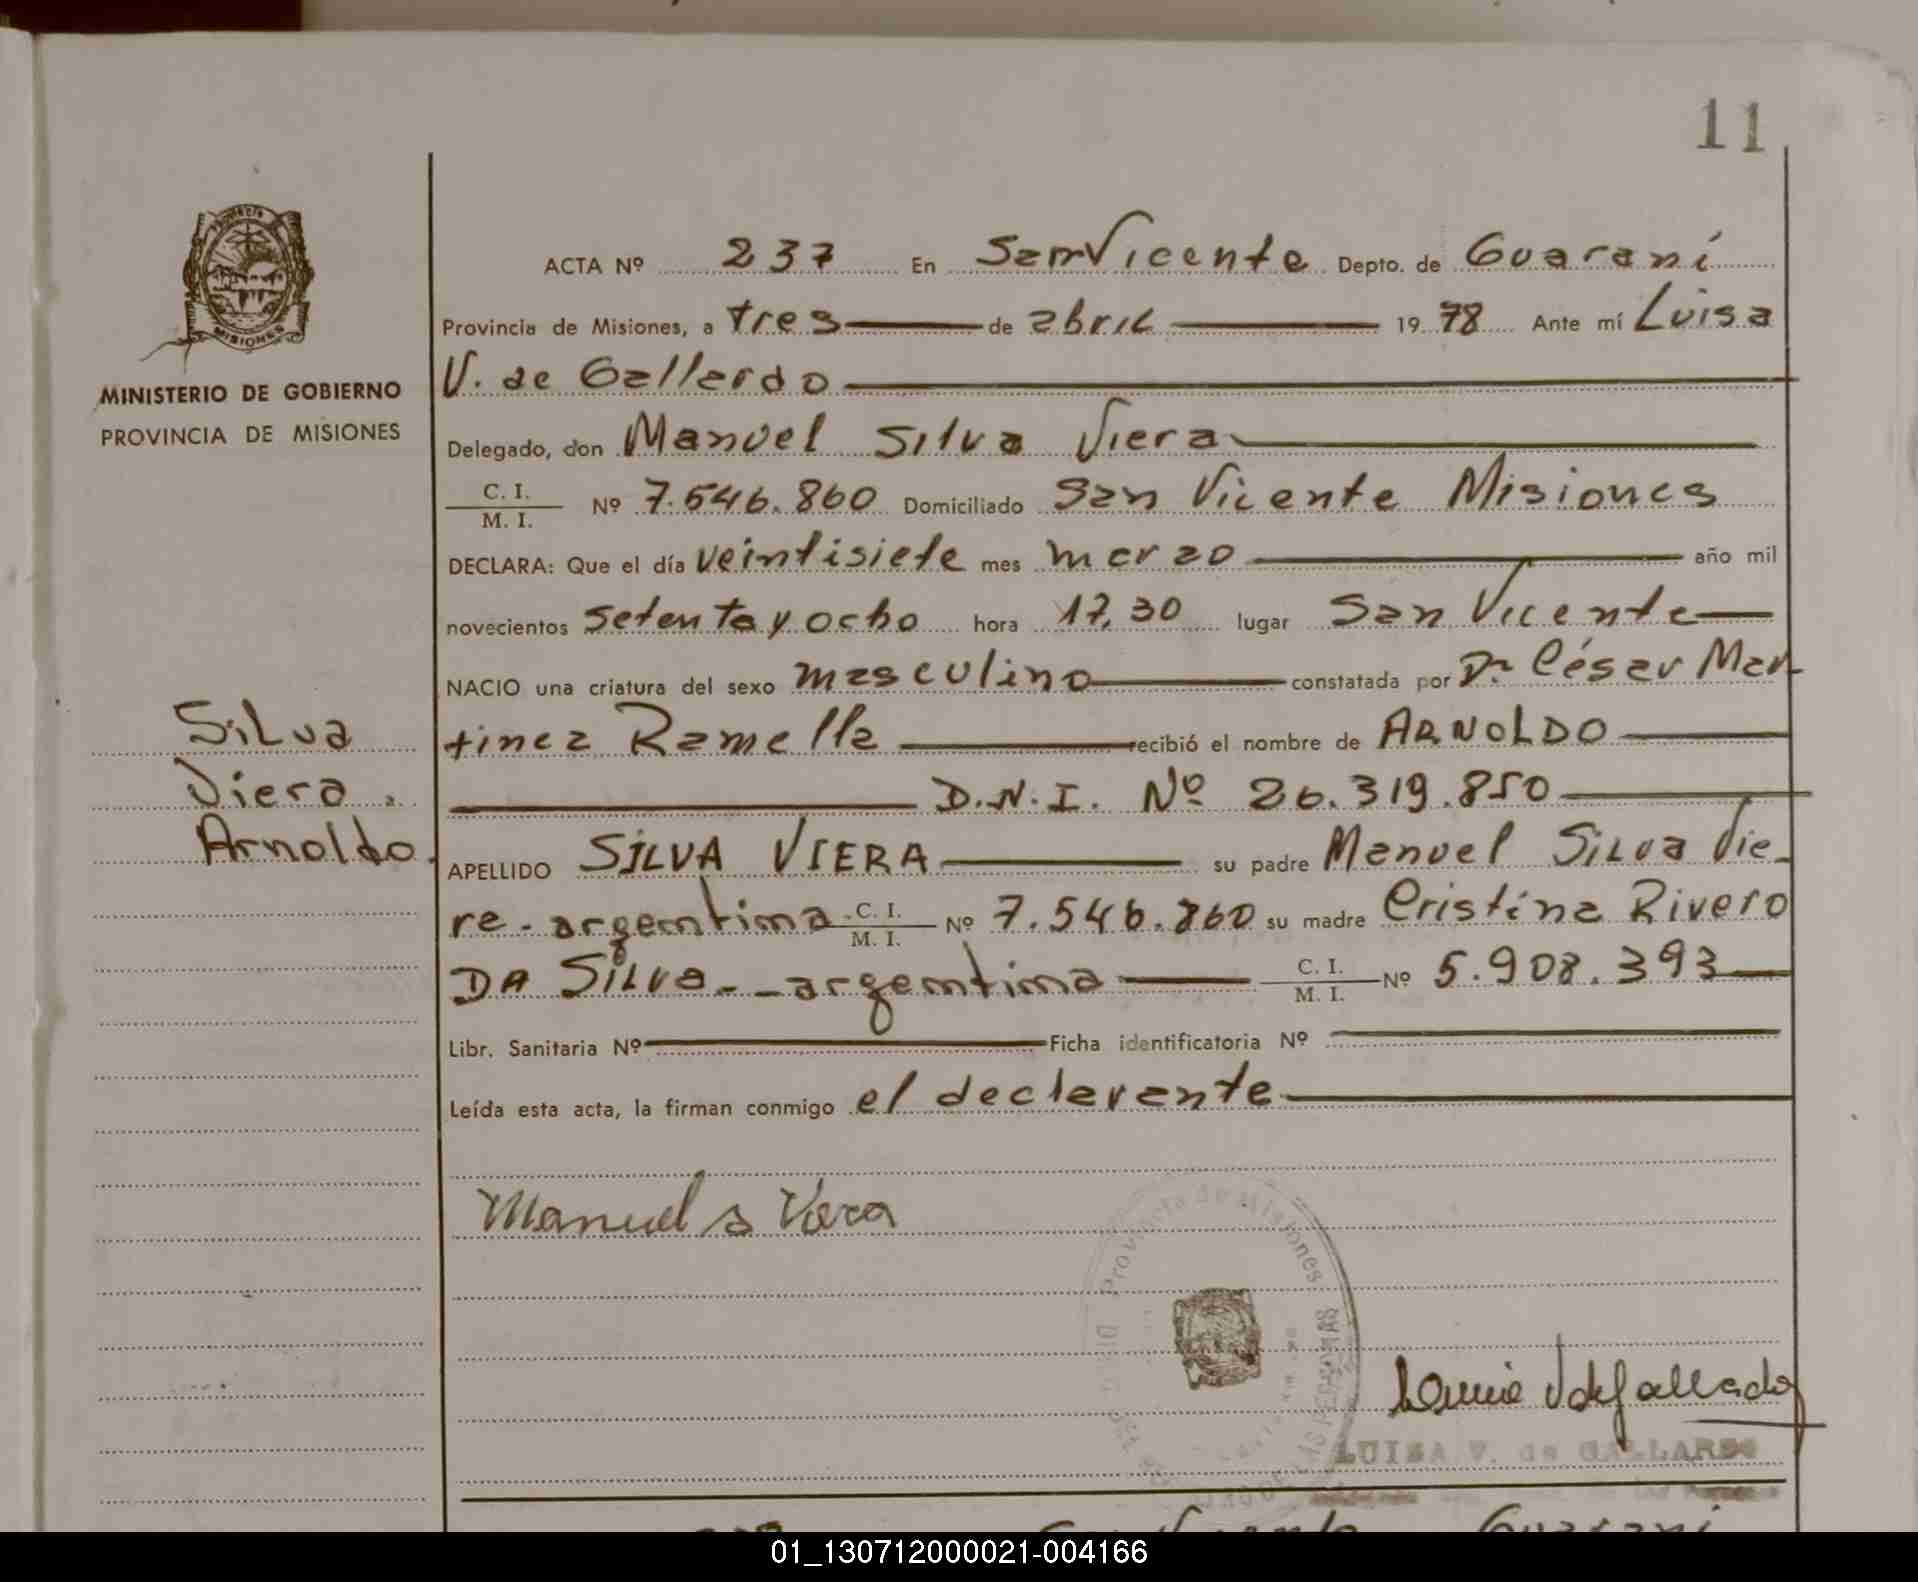 11
ACTA Nº 237 En San Vicente Depto. de Guaraní
Provincia de Misiones, a tres de abril 19 78 Ante mí Luisa
V. de Gallardo
MINISTERIO DE GOBIERNO
PROVINCIA DE MISIONES
MISIONES
Delegado, don Manuel Silva Viera
C. I.
M. I. Nº 7.546.860 Domiciliado San Vicente Misiones
DECLARA: Que el día veintisiete mes marzo año mil
novecientos setenta y ocho hora 17,30 lugar San Vicente
NACIO una criatura del sexo masculino constatada por Dr César Mar
tinez Ramella recibió el nombre de ARNOLDO
D.N.I. Nº 26.319.850
Silva
Viera.
Arnoldo.
APELLIDO SILVA VIERA su padre Manuel Silva Vie-
re - argentima C. I.
M. I. Nº 7.546.860 su madre Cristina Rivero
DA Silva - - argentima C. I.
M. I. Nº 5.908.393
Libr. Sanitaria Nº Ficha identificatoria Nº
Leída esta acta, la firman conmigo el declarante
Manuel s Viera
Provincia de Misiones
LAS PERSONAS
LUISA V. de GALLARDO
01_130712000021-004166